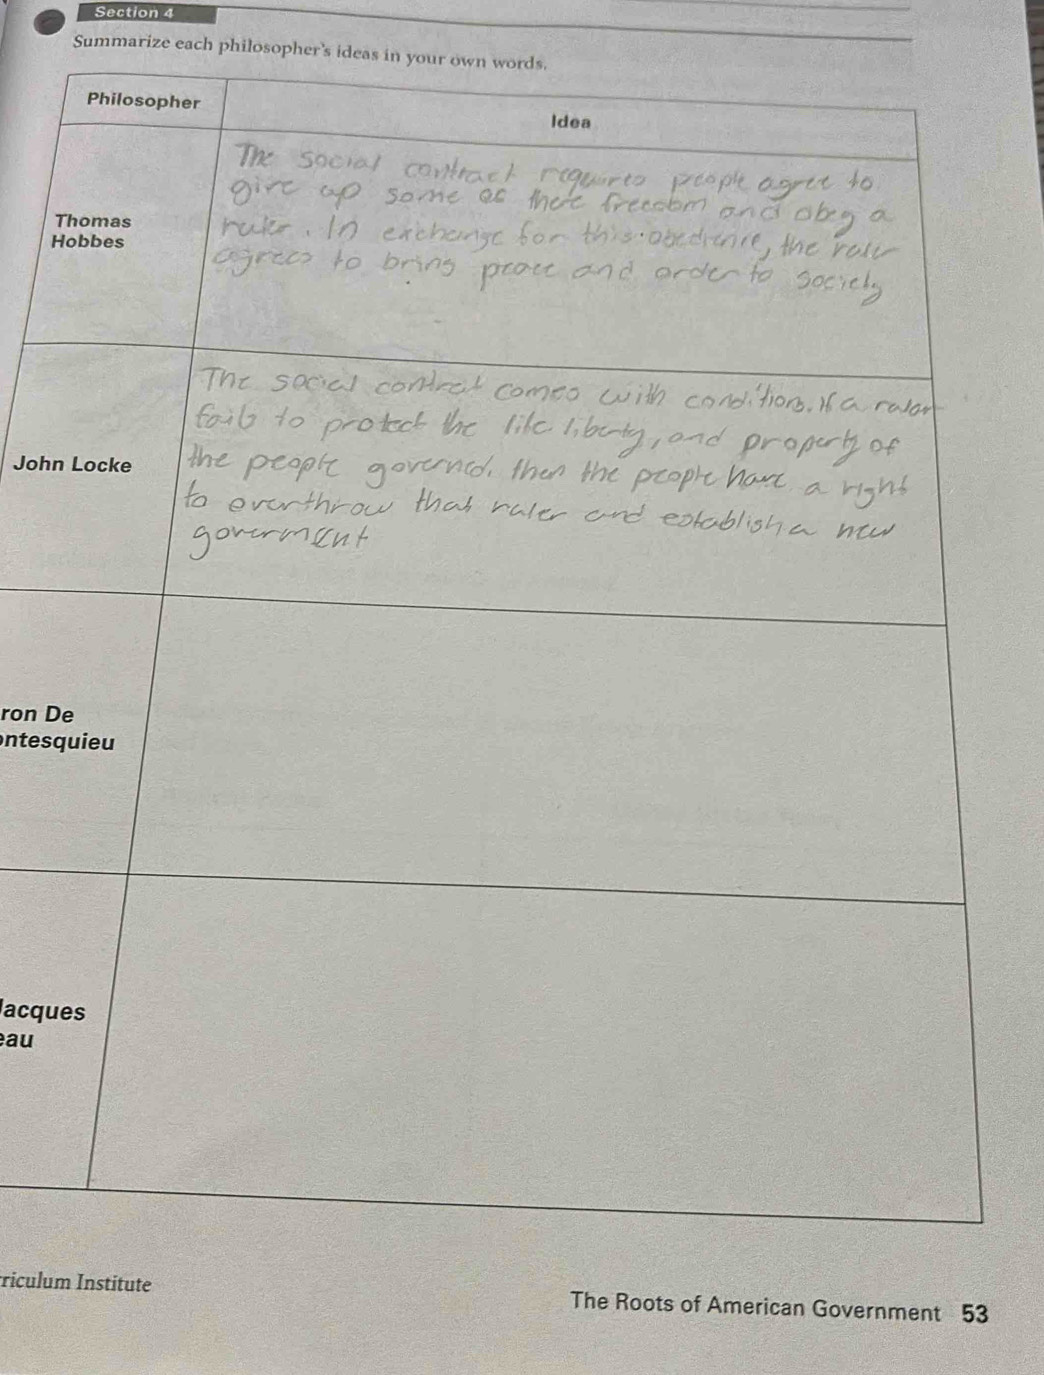 Section 4
Summarize each philosopher's ideas in your own words.
Philosopher
Idea
Thomas
Hobbes
The social contract requires people agree to
give up some of there freedom and obey a
ruler. In exchange for this obedience, the ruler
agrees to bring peace and order to society
John Locke
The social contract comes with conditions. If a ruler
fails to protect the life liberty, and property of
the people governed, then the people have a right
to overthrow that ruler and establish a new
goverment
ron De
ontesquieu
Jacques
eau
rriculum Institute
The Roots of American Government 53